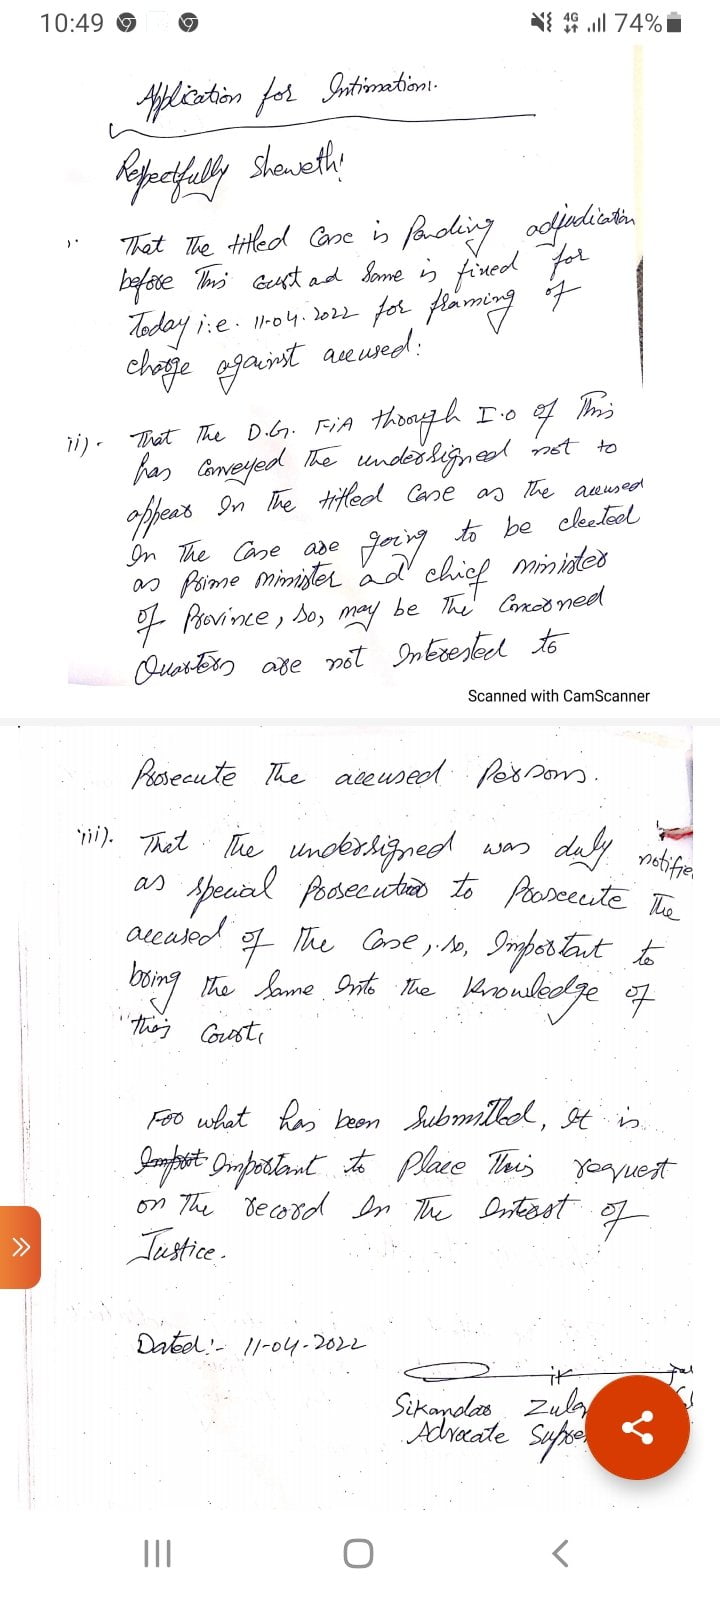 10:49
4G
74%
Application for Intimation:-
Respectfully Sheweth!
i. That The titled Case is Pending adjudication
before This Court ad Same is fixed for
Today i.e. 11-04-2022 for framing of
charge against accused:
ii)- That The D.G. FiA through I.O of This
has Conveyed The undersigned not to
appear In The titled Case as The accused
In The Case are going to be elected
as Prime Minister ad chief minister
of Province, So, may be The Concerned
Quarters are not Interested to
Scanned with CamScanner
Prosecute The accused Persons.
iii). That The undersigned was duly notifie
as Special Prosecutor to Prosecute The
accused of The Case, so, Important to
bring The Same Into The Knowledge of
this Court.
For what has been Submitted, It is
Important to Place This request
on The record In The Interest of
Justice.
Dated:- 11-04-2022
Sikandar
Advocate